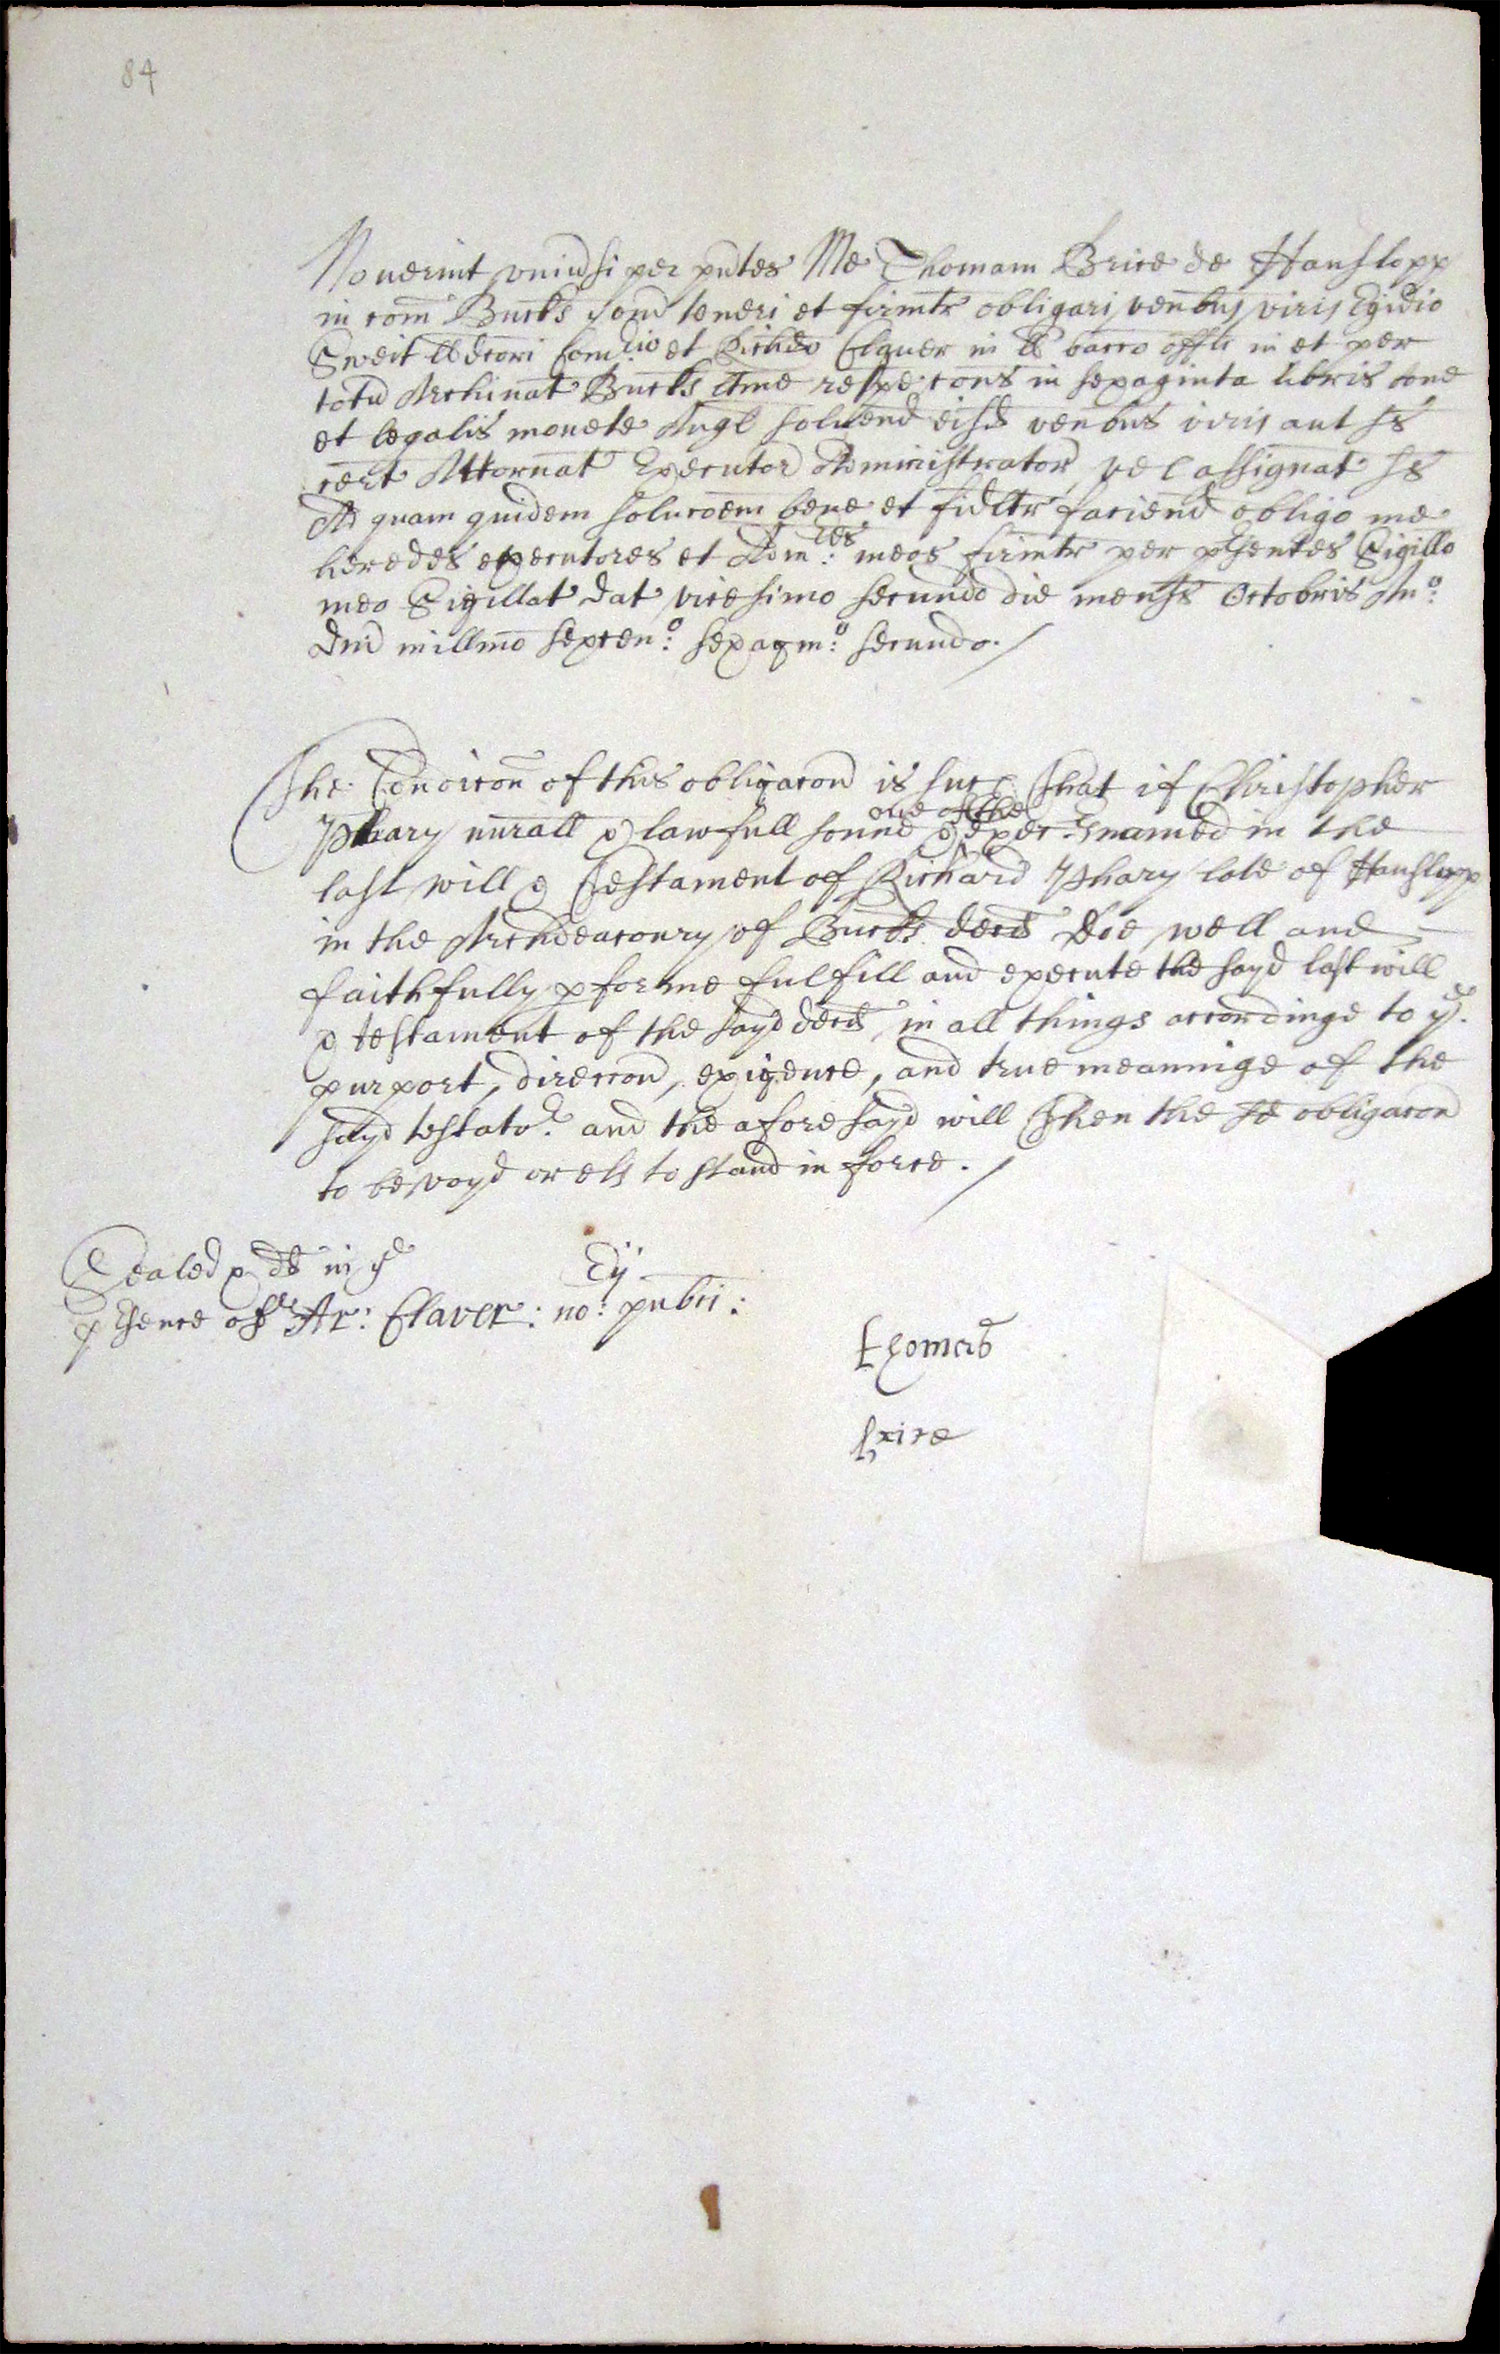 84
Noverint universi per pntes Me Thomam Brice de Hanslopp
in com Bucks teneri et firmtr obligari venbus viris Egidio
Sweit lldcori Com:rio et Richdo Claver in ll bacco offlr in et per
totu Archinat Bucks Ame respe:cons in sexaginta libris bone
et legalis monete Angl solvend eisd venbus viris aut
cert Attornat Executor Administrator vel assignat
Ad quam quidem solucoem bene et fidltr faciend obligo me
heredes executores et Adm:res meos firmtr per psentes Sigillo
meo Sigillat Dat vicesimo secundo die mensis Octobris Ano:
Dni millmo sexcen:o sexagm:o secundo./
The Condicon of this obligacon is such That if Christopher
Phary nurall & lawfull sonne & one of the exec:rs named in the
last will & Testament of Richard Phary late of Hanslopp
in the Archdeaconry of Bucks decd doe well and
faithfully pforme fulfill and execute the sayd last will
& testament of the sayd decd in all things accordinge to ye
purport, direccon, exigence, and true meaninge of the
sayd testator and the aforesayd will Then the sd obligacon
to be voyd or els to stand in force./
Sealed & dd in ye
psence off Ar: Claver: no: pubci:
Thomas
brice